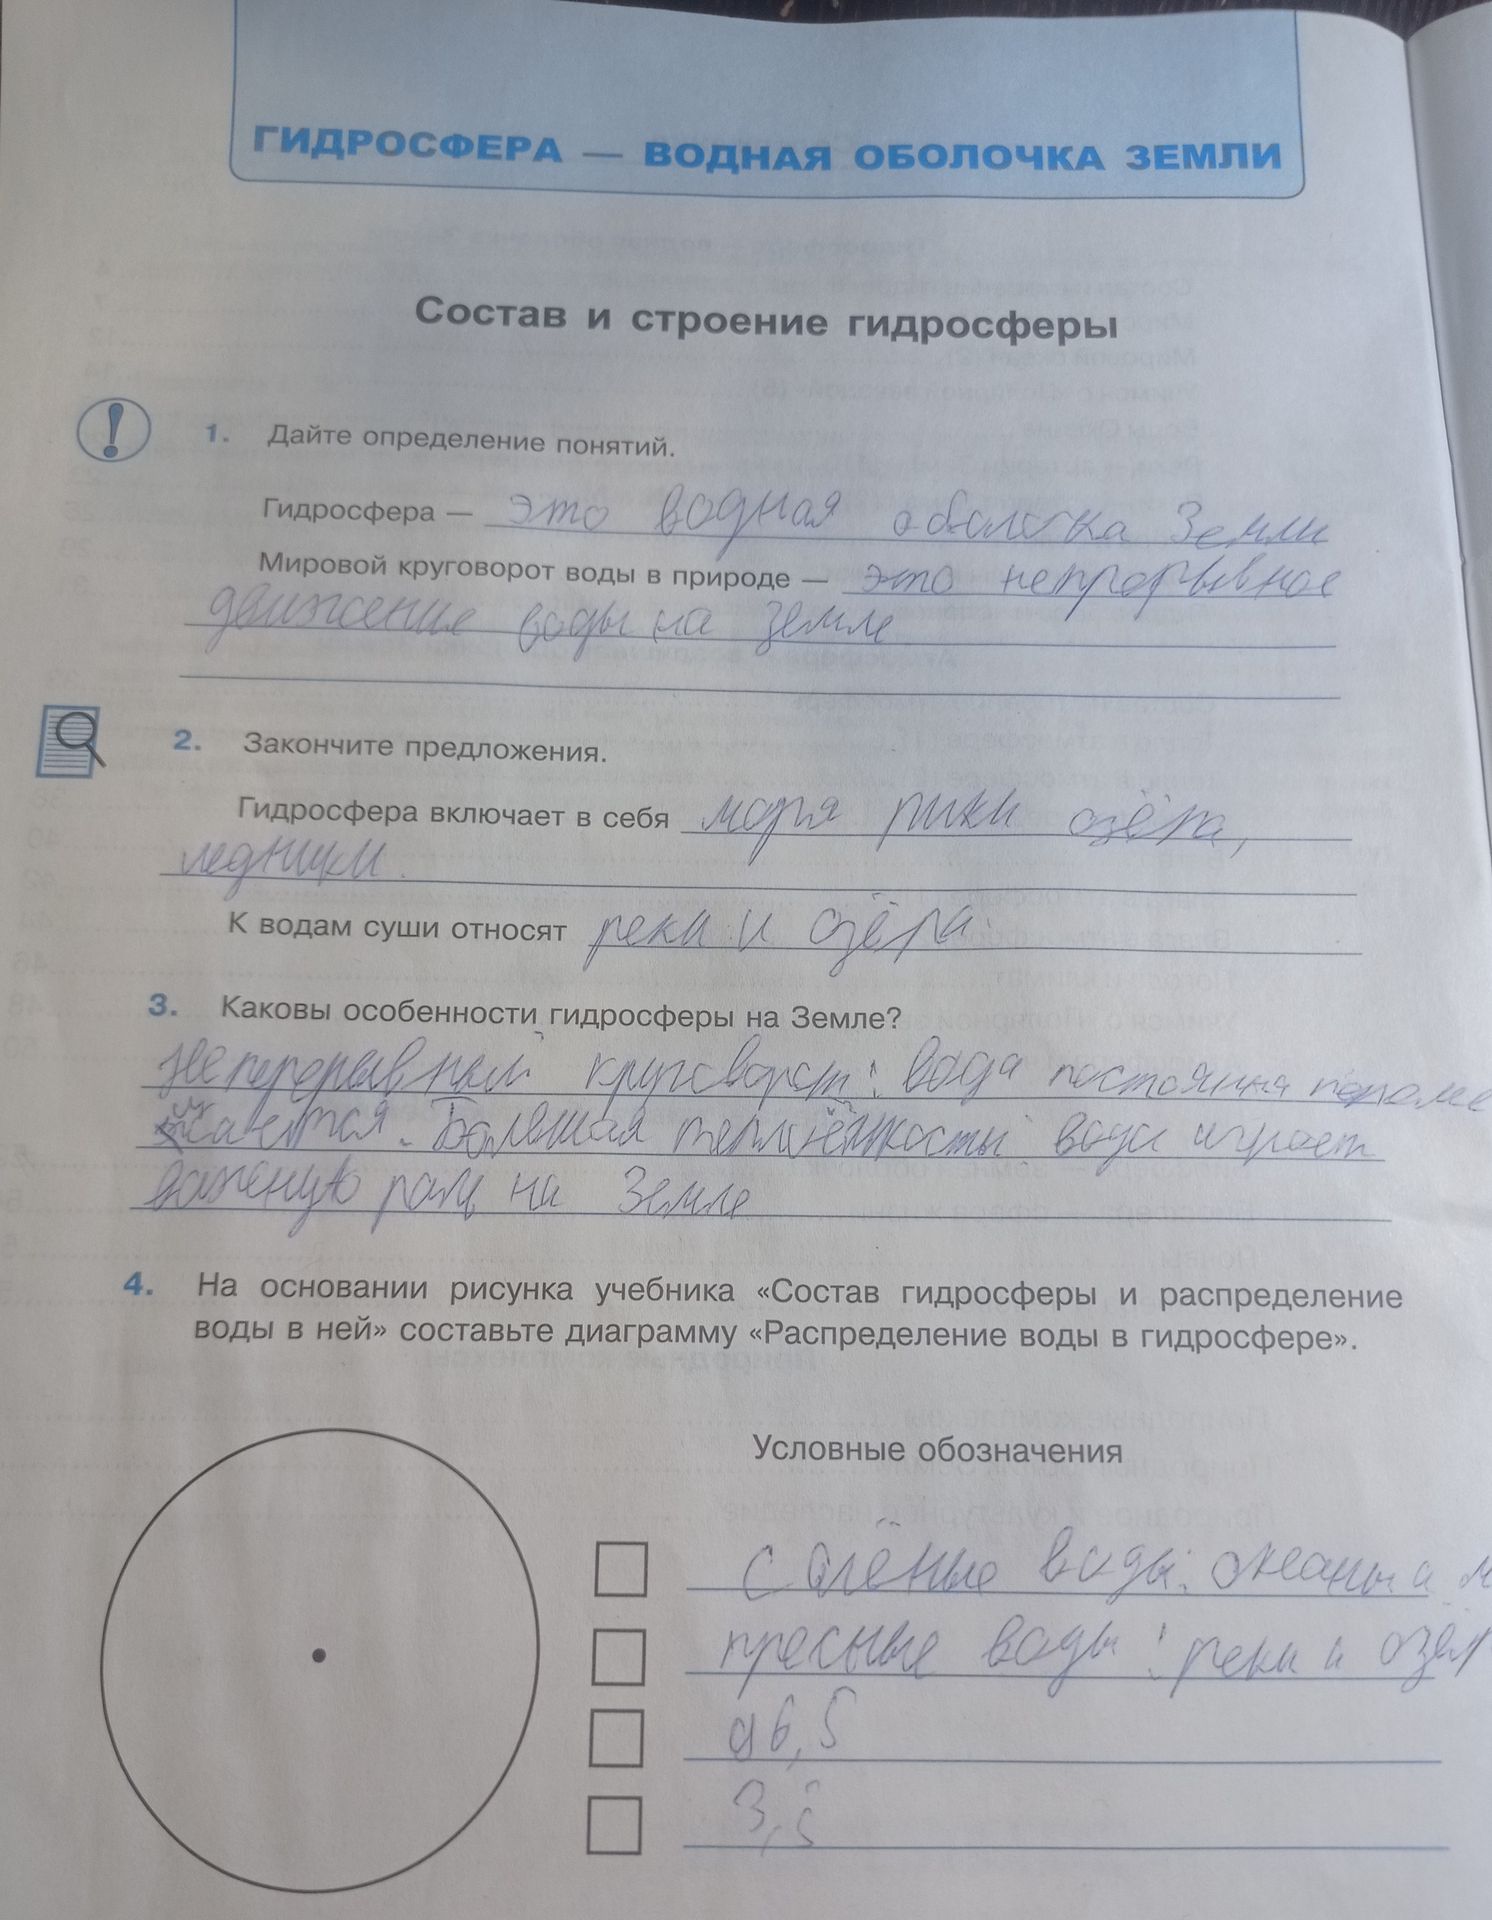 ГИДРОСФЕРА — ВОДНАЯ ОБОЛОЧКА ЗЕМЛИ
Состав и строение гидросферы
1. Дайте определение понятий.
Гидросфера — это водная оболочка Земли
Мировой круговорот воды в природе — это непрорывное
движение воды на земле
2. Закончите предложения.
Гидросфера включает в себя моря рики озёра,
ледники.
К водам суши относят реки и озёра.
3. Каковы особенности гидросферы на Земле?
Непрорывный круговорот: вода постоянна
Большая воды играет
важную на Земле
4. На основании рисунка учебника «Состав гидросферы и распределение
воды в ней» составьте диаграмму «Распределение воды в гидросфере».
Условные обозначения
солёные воды: океаны и м
пресные воды: реки и озёр
96,5
3,5